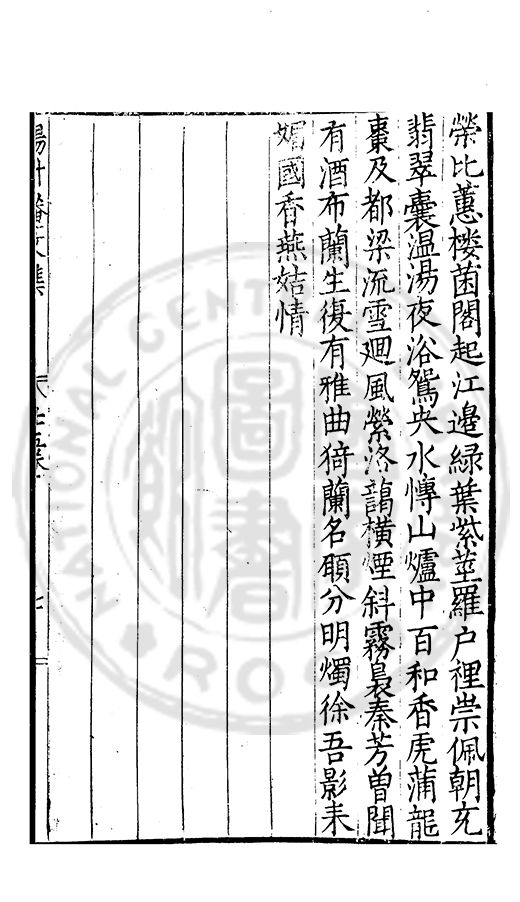 榮比蕙楼菌閣起江邉緑葉紫莖羅户裡崇佩朝充
翡翠囊温湯夜浴鴛央水愽山爐中百和香虎蒲龍
棗及都梁流雪廻風縈洛藹橫煙斜霧裊秦芳曽聞
有酒布蘭生復有雅曲猗蘭名願分明燭徐吾影来
媚國香燕姞情